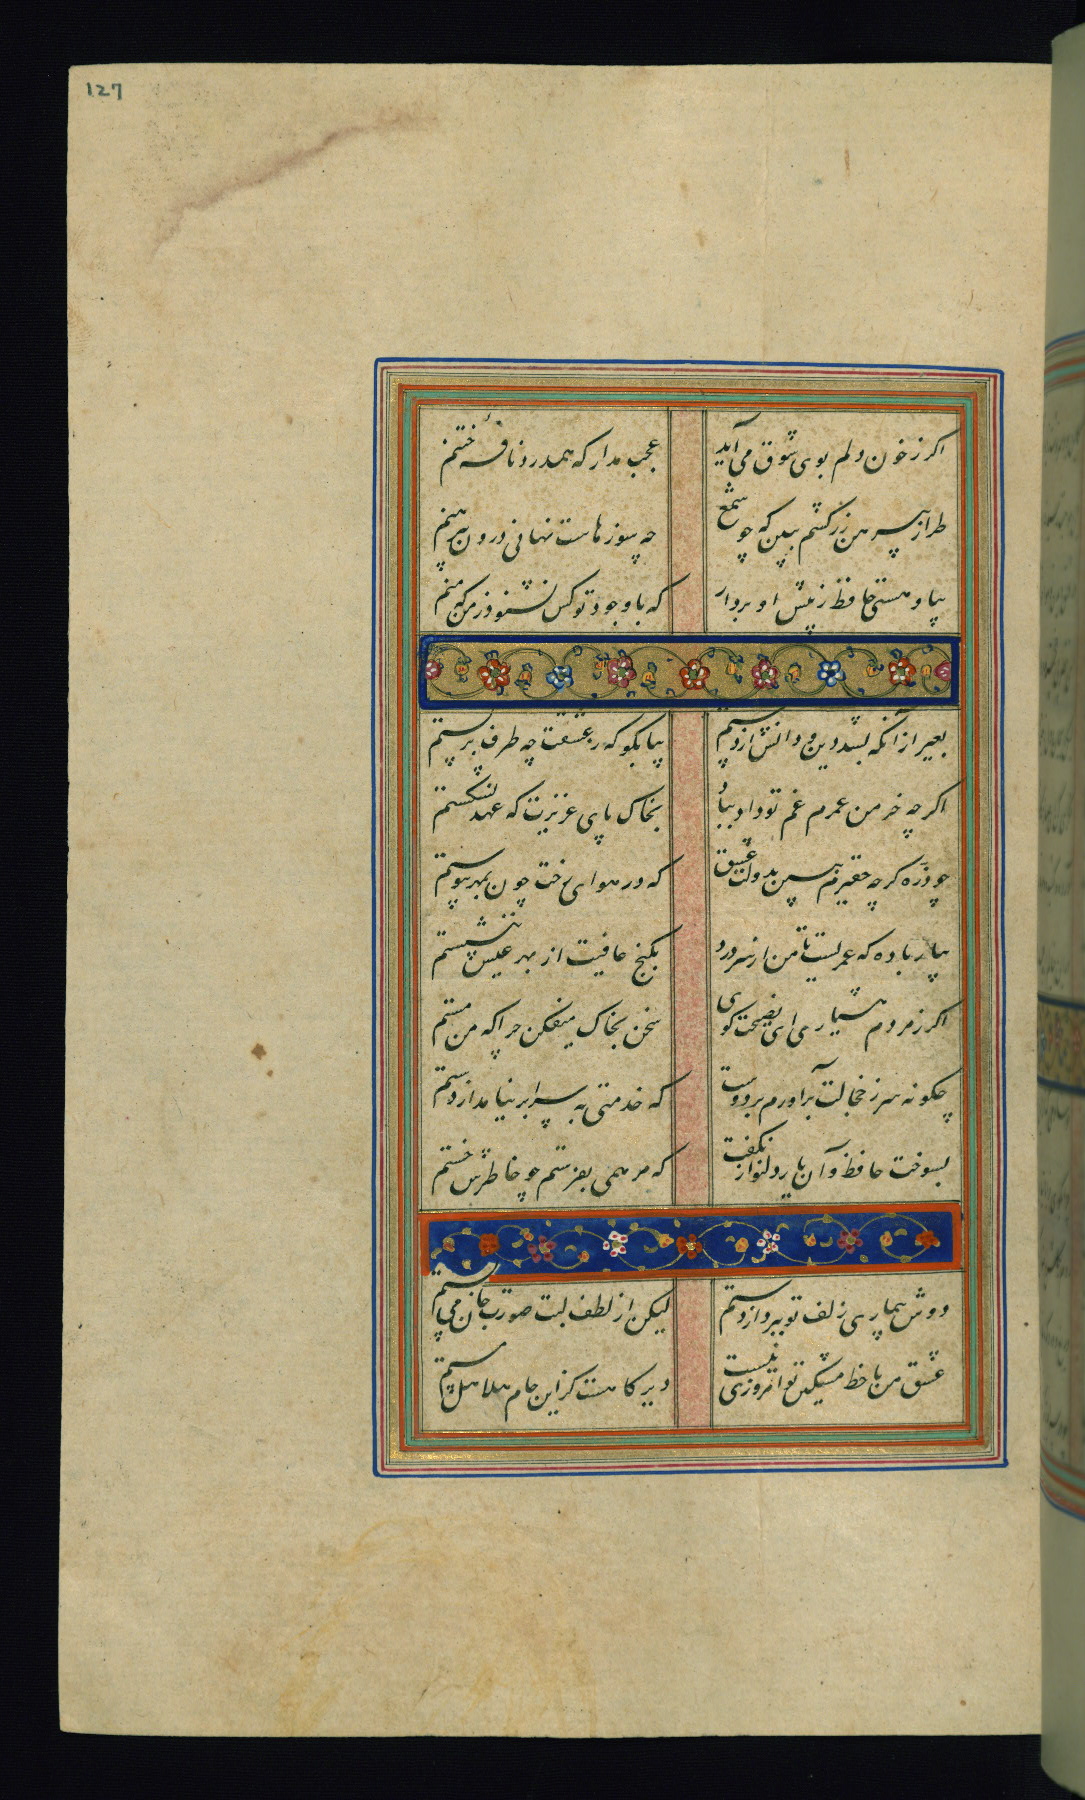 127
اکر ز خون دلم بوی شوق می آید عجب مدار که همدرد نافه ختنم
طراز پیرهن زرکشم ببین که چو شمع چه سوزهاست نهانی درون پیرهنم
بیا و هستی حافظ ز پیش او بردار که با وجود تو کس نشنود ز من که منم
بغیر از آنکه بشد دین و دانش از دستم بیا بکو که ز عشقت چه طرف بربستم
اکر چه خرمن عمرم غم تو داد بباد بخاک پای عزیزت که عهد نشکستم
چو ذره کر چه حقیرم ببین بدولت عشق که در هوای رخت چون بمهر پیوستم
بیار باده که عمریست تا من از سر درد بکنج عافیت از بهر عیش ننشستم
اکر ز مردم هشیاری ای نصیحت کوی سخن بخاک میفکن چرا که من مستم
چکونه سر ز خجالت برآورم بر دوست که خدمتی به سزا بر نیامد از دستم
بسوخت حافظ و آن یار دلنواز نکفت که مرهمی بفرستم چو خاطرش خستم
دوش بیماری زلف تو ببرد از دستم لیکن از لطف لبت صورت جان می بستم
عشق من با خط مشکین تو امروزی نیست دیر کاهست کز این جام هلالی مستم